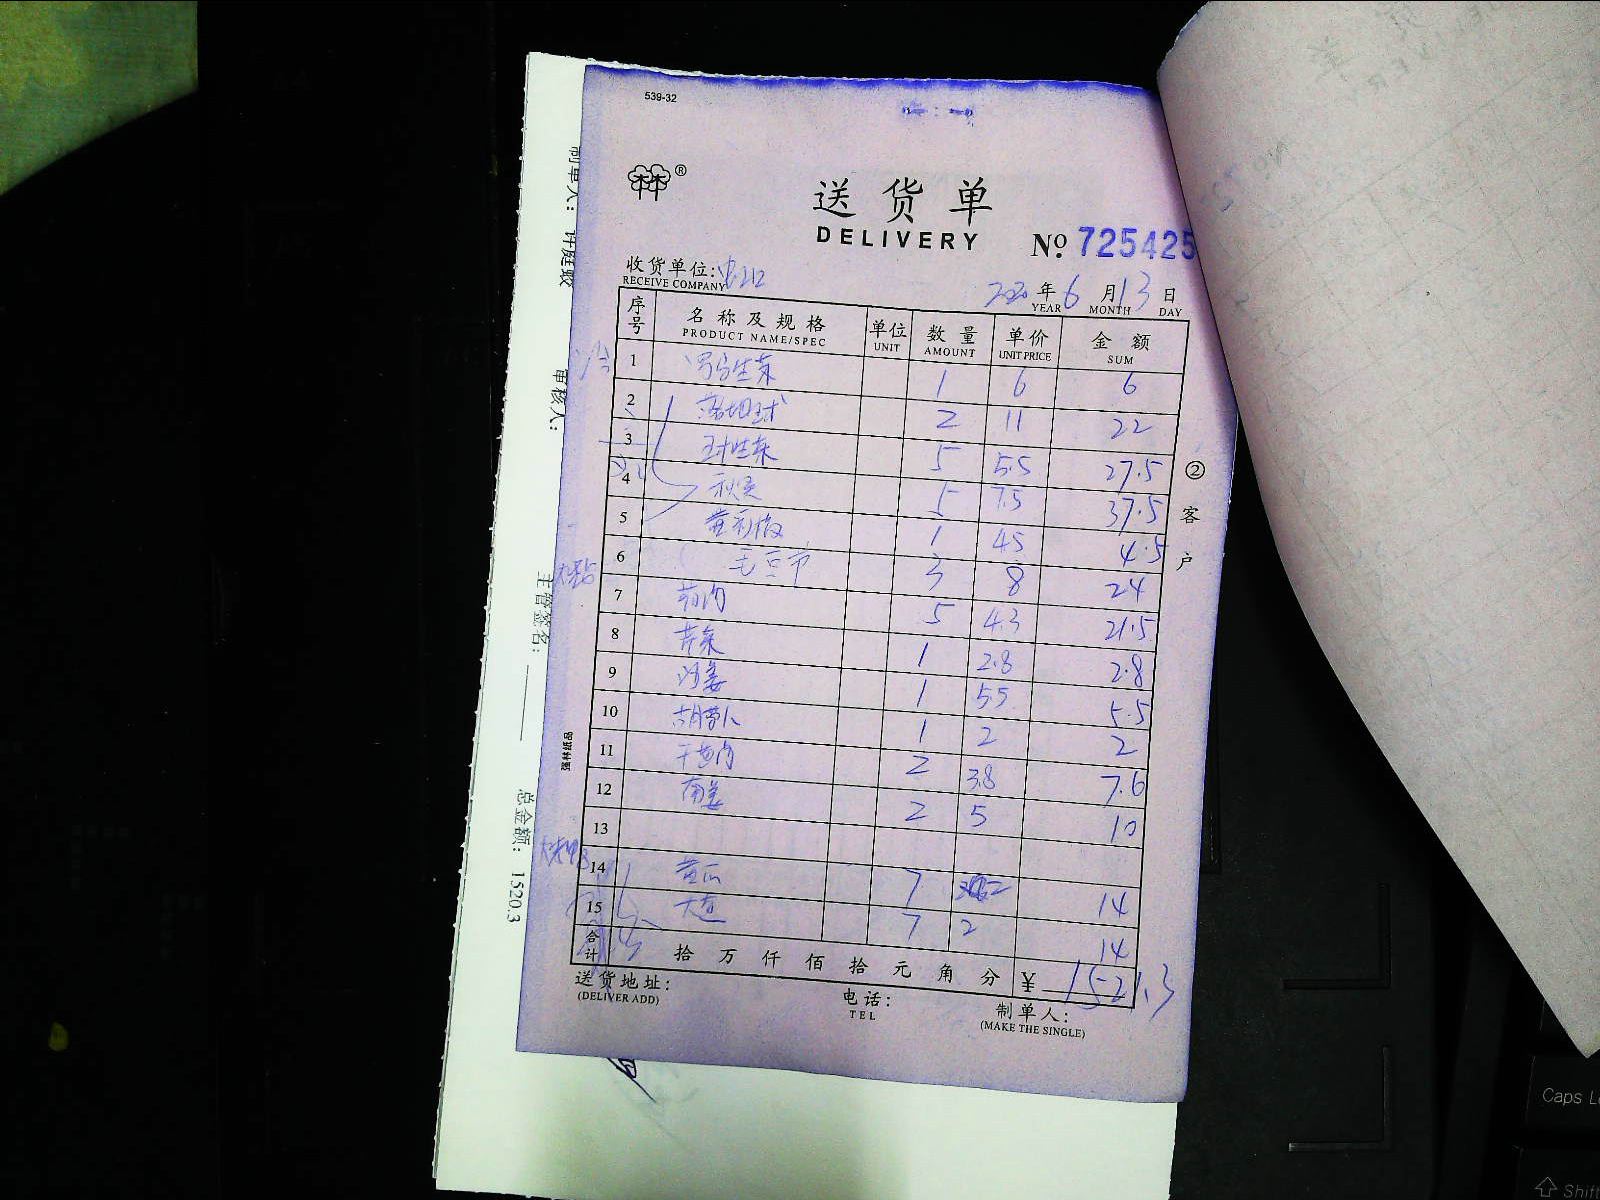 539-32
®
送货单
DELIVERY
No. 725425
收货单位:
RECEIVE COMPANY
2020 年 6 月 13 日
YEAR MONTH DAY
序号 名称及规格 单位 数量 单价 金额
PRODUCT NAME/SPEC UNIT AMOUNT UNIT PRICE SUM
1 罗马生菜 1 6 6
2 2 11 22
3 球生菜 5 5.5 27.5
4 秋葵 5 7.5 37.5
5 1 4.5 4.5
6 毛豆节 3 8 24
7 5 4.3 21.5
8 芹菜 1 2.8 2.8
9 沙姜 1 5.5 5.5
10 胡萝卜 1 2 2
11 2 3.8 7.6
12 南姜 2 5 10
13
14 黄瓜 7 2 14
15 大 7 2 14
合计 拾万仟佰拾元角分 ¥ 1521.3
送货地址:
(DELIVER ADD)
电话:
TEL
制单人:
(MAKE THE SINGLE)
② 客户
强林纸品
制单人: 许庭蛟
审核人:
主管签名:
总金额: 1520.3
Caps L
Shift